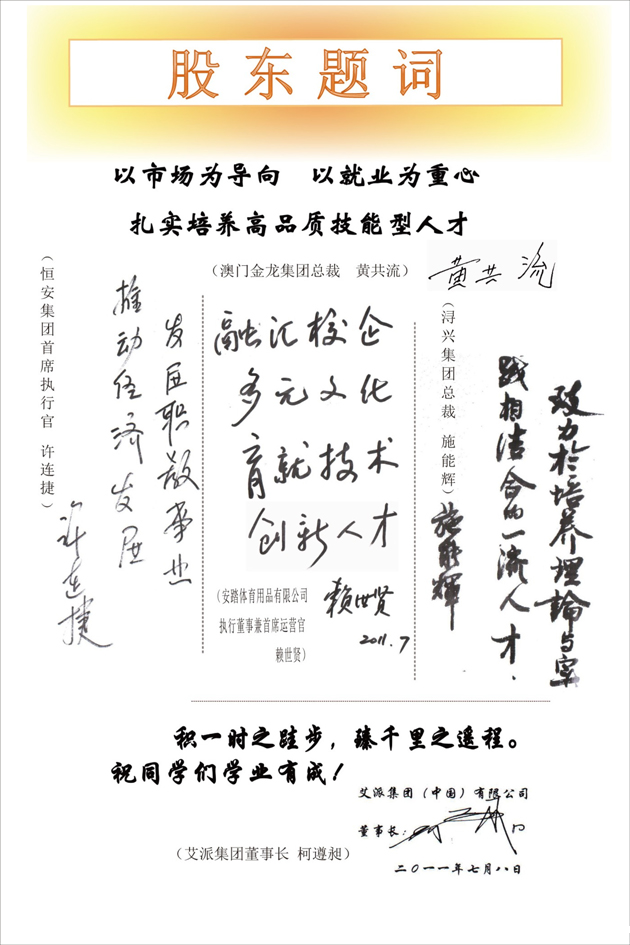 股东题词
以市场为导向 以就业为重心
扎实培养高品质技能型人才
（澳门金龙集团总裁 黄共流）
黄共流
致力於培养理論与实
践相结合的一流人才.
施能輝
（浔兴集团总裁 施能辉）
融汇校企
多元文化
育就技术
创新人才
赖世贤
2011.7
（安踏体育用品有限公司
执行董事兼首席运营官
赖世贤）
发展职教事业
推动经济发展
许连捷
（恒安集团首席执行官 许连捷）
积一时之跬步，臻千里之遥程。
祝同学们学业有成！
艾派集团（中国）有限公司
董事长：
二〇一一年七月八日
（艾派集团董事长 柯遵昶）